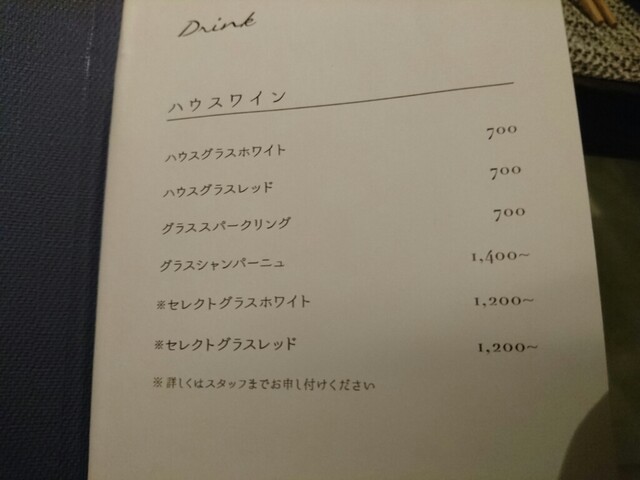 Drink
ハウスワイン
ハウスグラスホワイト 700
ハウスグラスレッド 700
グラススパークリング 700
グラスシャンパーニュ 1,400~
※セレクトグラスホワイト 1,200~
※セレクトグラスレッド 1,200~
※ 詳しくはスタッフまでお申し付けください